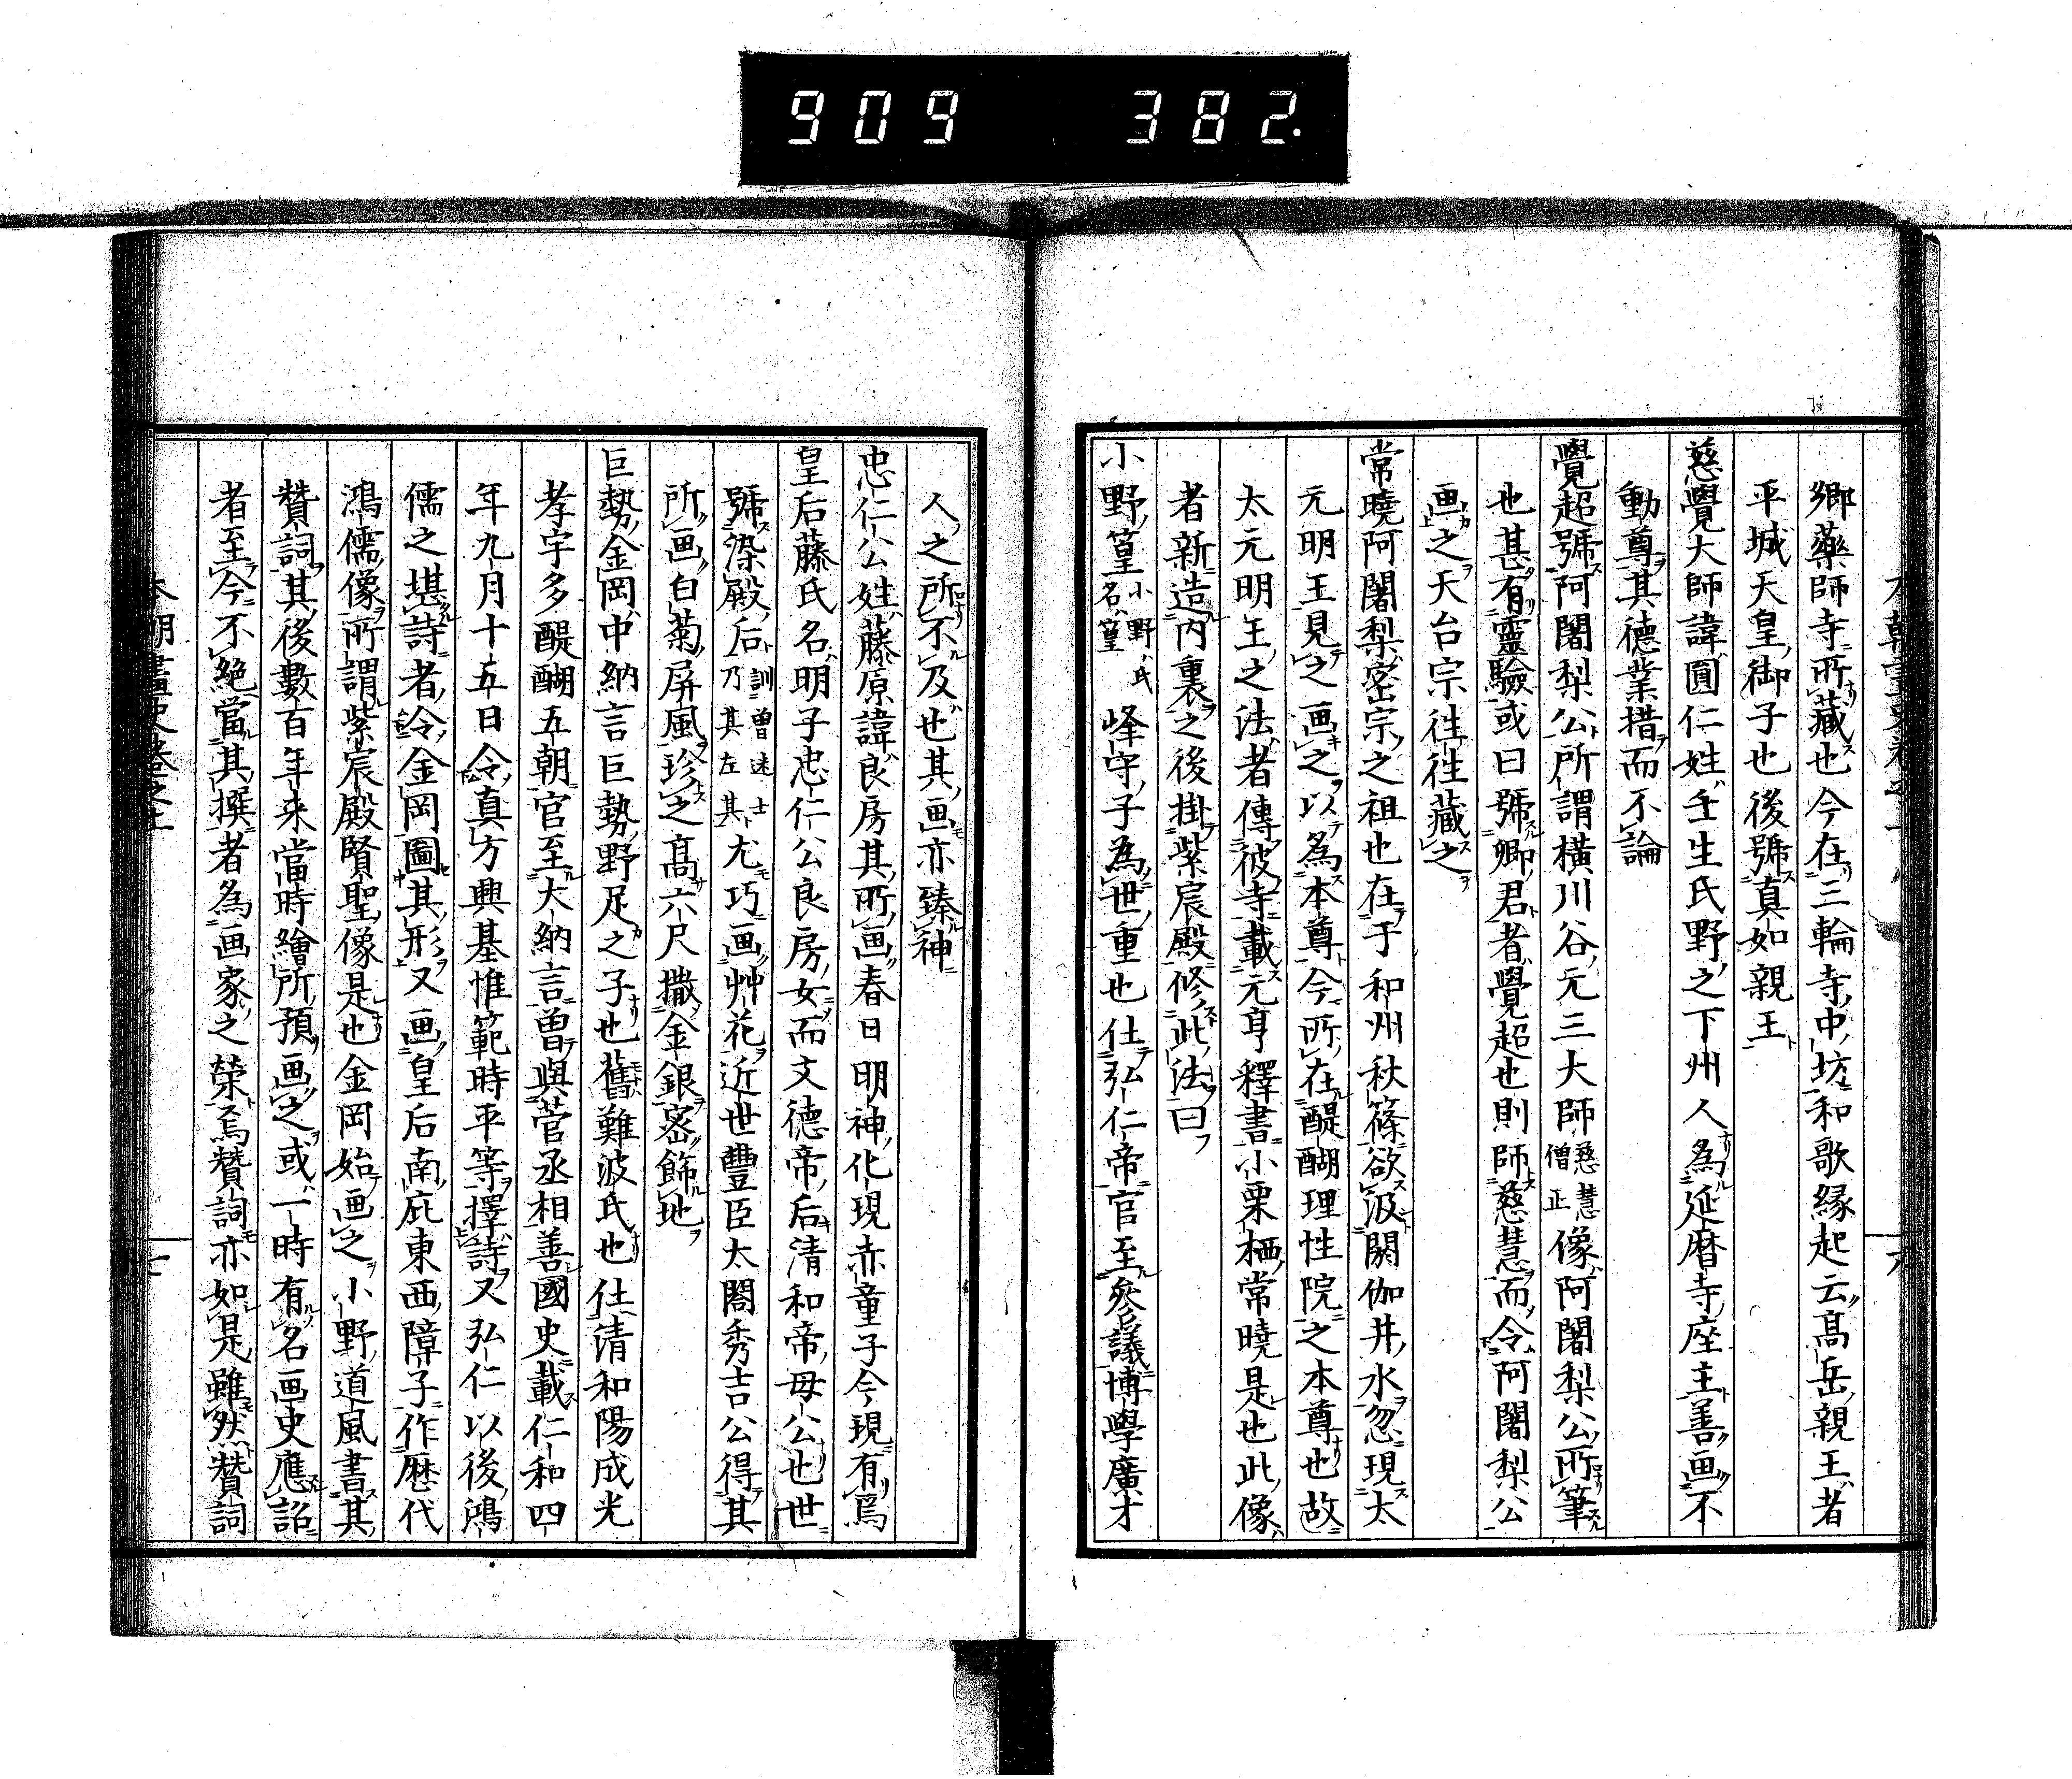 909 382.
卿藥師寺所藏也今在三輪寺中坊和歌縁起云髙岳親王者
平城天皇御子也後號真如親王
慈覺大師諱圓仁姓壬生氏野之下州人為延曆寺座主善画不
動尊其德業措而不論
覺超號阿闍梨公所謂橫川谷元三大師慈慧僧正像阿闍梨公所筆
也甚有靈驗或曰號卿君者覺超也則師慈慧而令阿闍梨公
画之天台宗往往藏之
常曉阿闍梨密宗之祖也在于和州秋篠欲汲閼伽井水忽現太
元明王見之画之以為本尊今所在醍醐理性院之本尊也故
太元明王之法者傳彼寺載元亨釋書小栗栖常曉是也此像
者新造内裏之後掛紫宸殿修此法曰
小野篁小野氏名篁 峰守子為世重也仕弘仁帝官至參議博學廣才
人之所不及也其画亦臻神
忠仁公姓藤原諱良房其所画春日明神化現赤童子今現有焉
皇后藤氏名明子忠仁公良房女而文德帝后清和帝母公也世
號染殿后訓曽迷士乃其左其尤巧画艸花近世豐臣太閤秀吉公得其
所画白菊屏風珍之髙六尺撒金銀密飾地
巨勢金岡中納言巨勢野足之子也舊難波氏也仕清和陽成光
孝宇多醍醐五朝官至大納言曽與菅丞相善國史載仁和四
年九月十五日令真方興基惟範時平等擇詩又弘仁以後鴻
儒之堪詩者令金岡圖其形又画皇后南庇東西障子作歴代
鴻儒像所謂紫宸殿賢聖像是也金岡始画之小野道風書其
贊詞其後數百年来當時繪所預画之或一時有名画史應詔
者至今不絶當其撰者為画家之榮焉贊詞亦如是雖然贊詞
本朝畫史卷之上 七